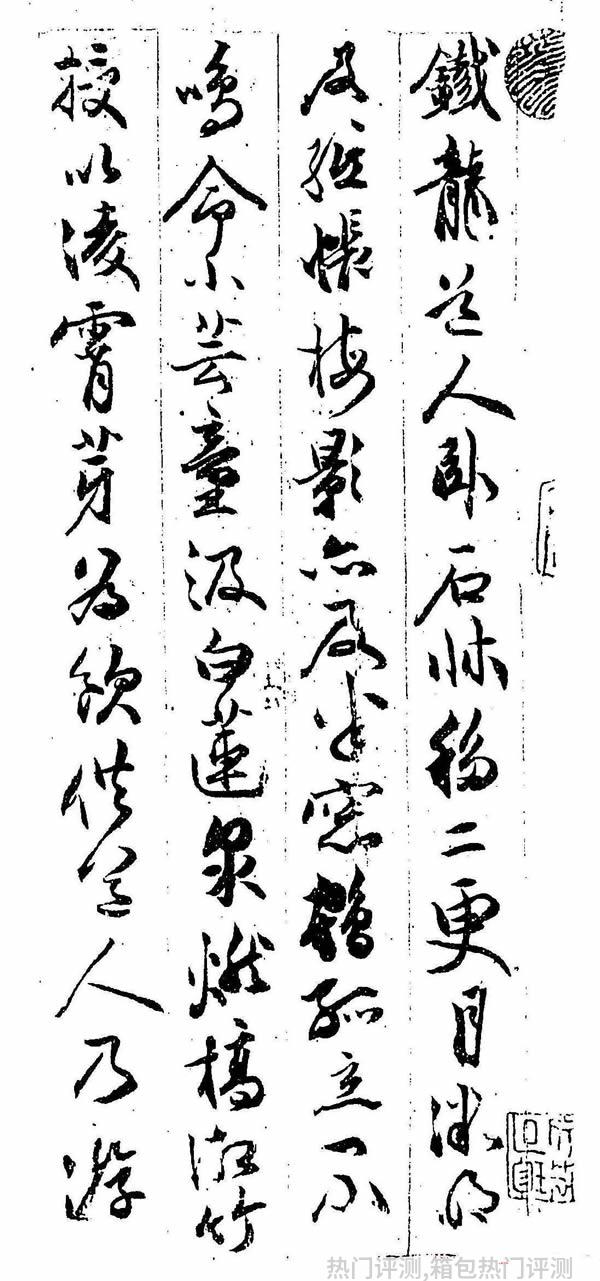 鐵龍道人臥石牀移二更月微明
及紙帳梅影亦及半窓鶴孤立不
鳴命小芸童汲白蓮泉燃槁湘竹
授以淩霄芽為飲供道人乃游
热门评测,箱包热门评测